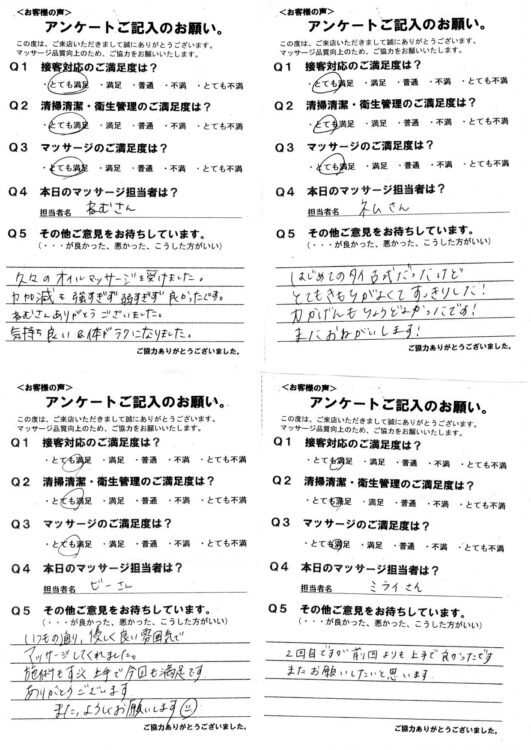 ＜お客様の声＞
アンケートご記入のお願い。
この度は、ご来店いただきまして誠にありがとうございます。
マッサージ品質向上のため、ご協力をお願いいたします。
Q1 接客対応のご満足度は？
・とても満足 ・満足 ・普通 ・不満 ・とても不満
Q2 清掃清潔・衛生管理のご満足度は？
・とても満足 ・満足 ・普通 ・不満 ・とても不満
Q3 マッサージのご満足度は？
・とても満足 ・満足 ・普通 ・不満 ・とても不満
Q4 本日のマッサージ担当者は？
担当者名 ねむさん
Q5 その他ご意見をお待ちしています。
（・・・が良かった、悪かった、こうした方がいい）
久々のオイルマッサージを受けました。
力加減も強すぎず弱すぎず良かったです。
ねむさんありがとうございました。
気持ち良い&体がラクになりました。
ご協力ありがとうございました。
＜お客様の声＞
アンケートご記入のお願い。
この度は、ご来店いただきまして誠にありがとうございます。
マッサージ品質向上のため、ご協力をお願いいたします。
Q1 接客対応のご満足度は？
・とても満足 ・満足 ・普通 ・不満 ・とても不満
Q2 清掃清潔・衛生管理のご満足度は？
・とても満足 ・満足 ・普通 ・不満 ・とても不満
Q3 マッサージのご満足度は？
・とても満足 ・満足 ・普通 ・不満 ・とても不満
Q4 本日のマッサージ担当者は？
担当者名 ネムさん
Q5 その他ご意見をお待ちしています。
（・・・が良かった、悪かった、こうした方がいい）
はじめてのタイ古式だったけど
とてもきもちがよくてすっきりした！
力かげんもちょうどよかったです！
またおねがいします！
ご協力ありがとうございました。
＜お客様の声＞
アンケートご記入のお願い。
この度は、ご来店いただきまして誠にありがとうございます。
マッサージ品質向上のため、ご協力をお願いいたします。
Q1 接客対応のご満足度は？
・とても満足 ・満足 ・普通 ・不満 ・とても不満
Q2 清掃清潔・衛生管理のご満足度は？
・とても満足 ・満足 ・普通 ・不満 ・とても不満
Q3 マッサージのご満足度は？
・とても満足 ・満足 ・普通 ・不満 ・とても不満
Q4 本日のマッサージ担当者は？
担当者名 ビーさん
Q5 その他ご意見をお待ちしています。
（・・・が良かった、悪かった、こうした方がいい）
いつもの通り、優しく良い雰囲気で
マッサージしてくれました。
施術もすごく上手で今回も満足です
ありがとうございます
また、よろしくお願いします
ご協力ありがとうございました。
＜お客様の声＞
アンケートご記入のお願い。
この度は、ご来店いただきまして誠にありがとうございます。
マッサージ品質向上のため、ご協力をお願いいたします。
Q1 接客対応のご満足度は？
・とても満足 ・満足 ・普通 ・不満 ・とても不満
Q2 清掃清潔・衛生管理のご満足度は？
・とても満足 ・満足 ・普通 ・不満 ・とても不満
Q3 マッサージのご満足度は？
・とても満足 ・満足 ・普通 ・不満 ・とても不満
Q4 本日のマッサージ担当者は？
担当者名 ミライさん
Q5 その他ご意見をお待ちしています。
（・・・が良かった、悪かった、こうした方がいい）
2回目ですが前回よりも上手で良かったです
またお願いしたいと思います
ご協力ありがとうございました。